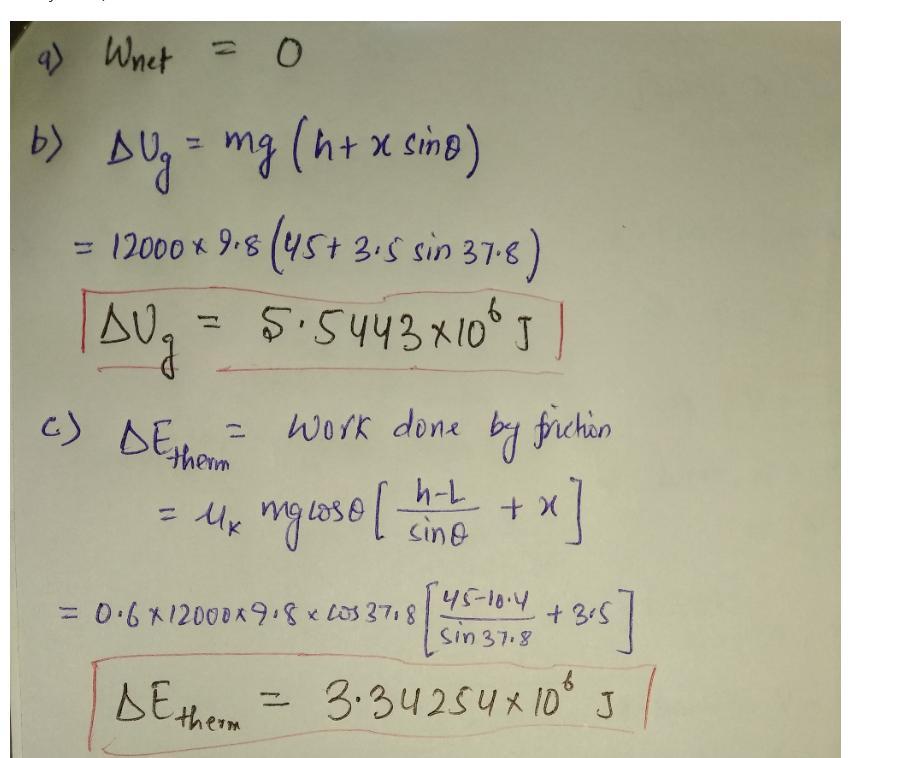 a) Wnet = 0
b) ΔUg = mg (h + x sinθ)
= 12000 × 9.8 (45 + 3.5 sin 37.8)
ΔUg = 5.5443 × 10⁶ J
c) ΔEtherm = Work done by friction
= μk mg cosθ [ (h-L)/sinθ + x ]
= 0.6 × 12000 × 9.8 × cos 37.8 [ (45-10.4)/sin 37.8 + 3.5 ]
ΔEtherm = 3.34254 × 10⁶ J